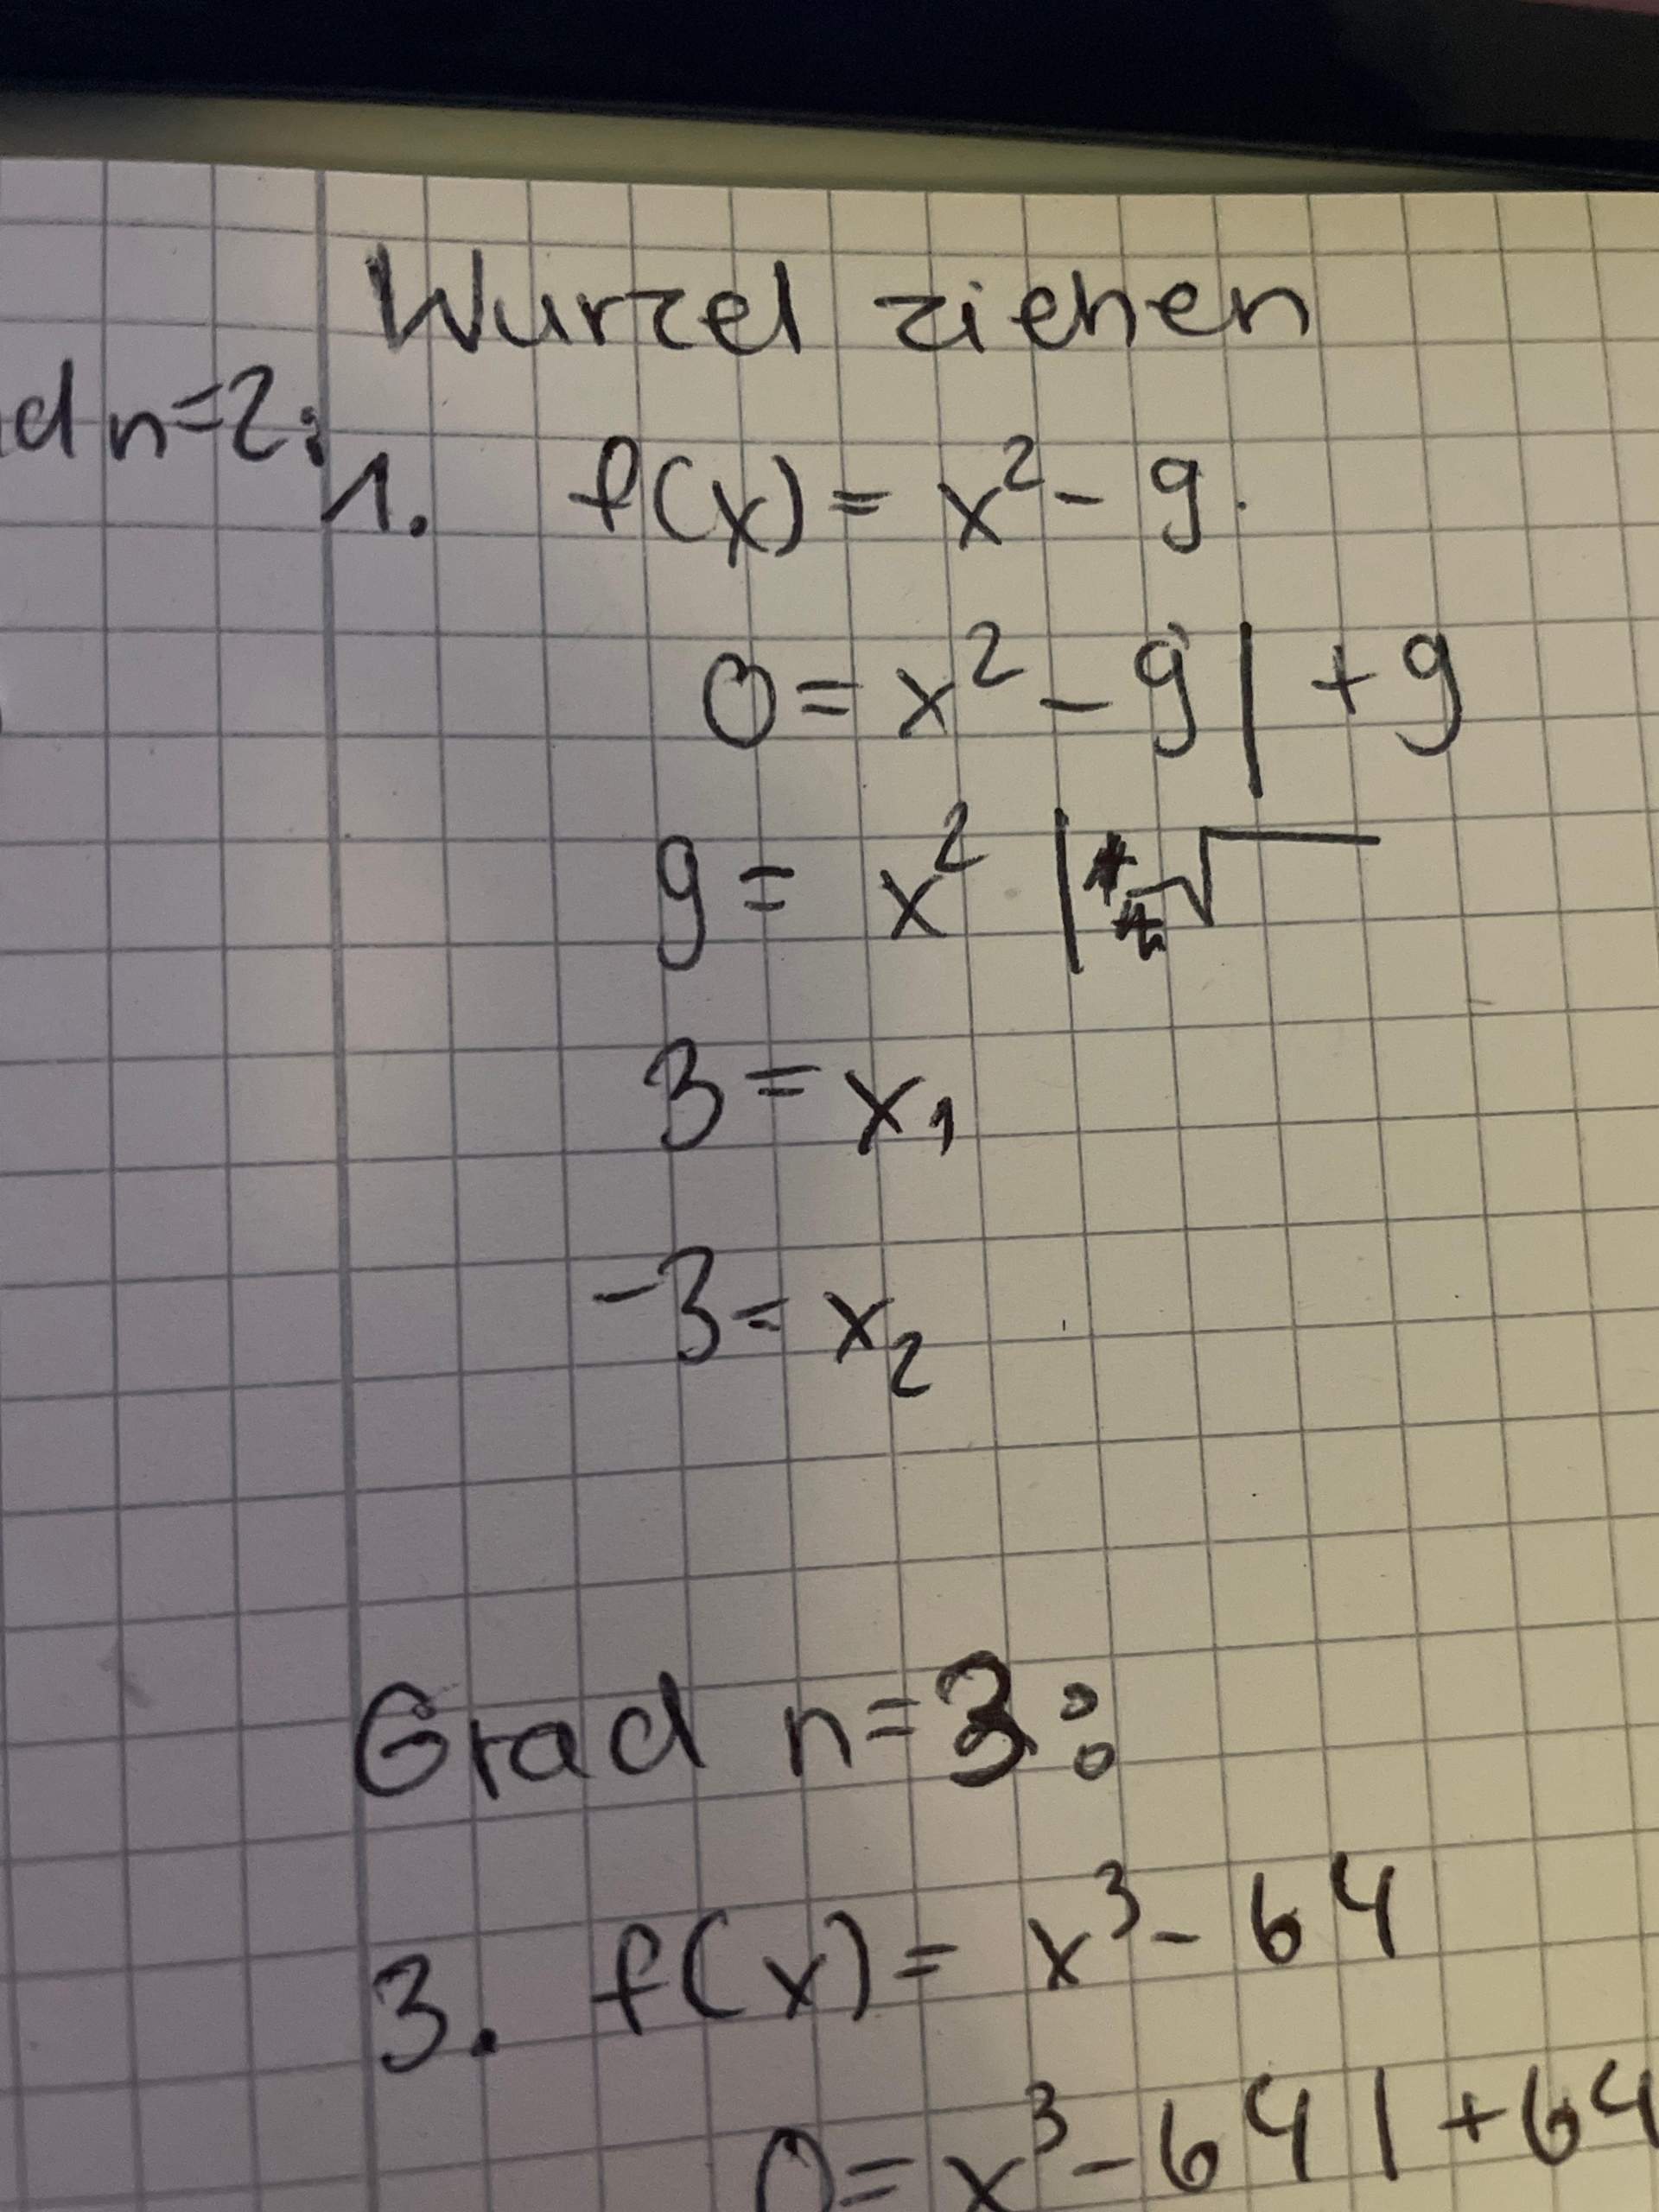 Wurzel ziehen
d n=2:
1. f(x) = x² - 9
0 = x² - 9 | + 9
9 = x² | √
3 = x₁
-3 = x₂
Grad n=3:
3. f(x) = x³ - 64
0 = x³ - 64 | + 64